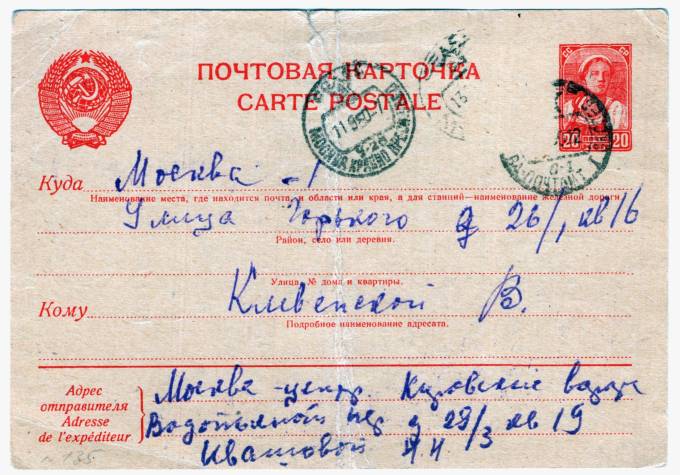 ПОЧТОВАЯ КАРТОЧКА
CARTE POSTALE
СС СР
20 20
Куда Москва - 1
Наименование места, где находится почта, и области или края, а для станций—наименование железной дороги
Улица Горького д 26/1, кв 16
Район, село или деревня.
Улица, № дома и квартиры.
Кому Кливенской В.
Подробное наименование адресата.
Адрес отправителя
Adresse de l'expéditeur
Москва - центр. Кировские ворота
Водопьяный пер д 29/3 кв 19
Ивашовой Н.Н.